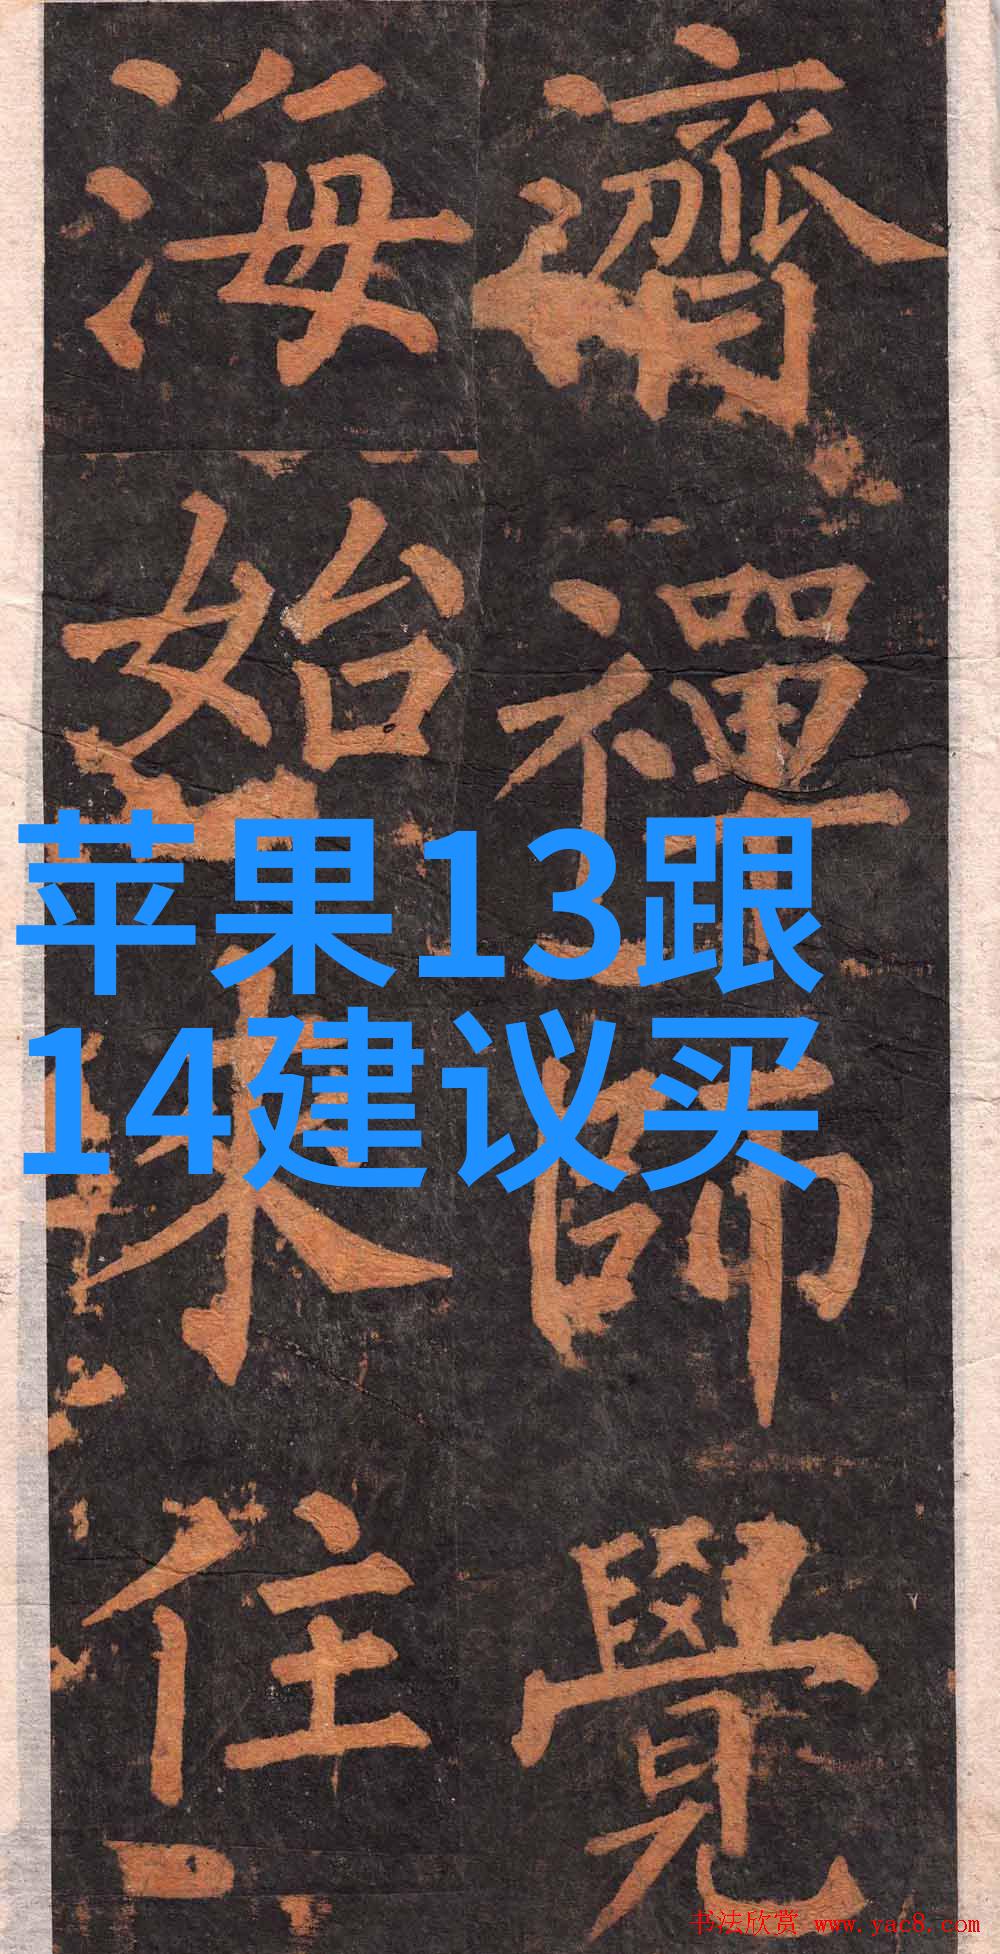 濟禪師覺
海始來住
苹果13跟
14建议买
书法欣赏 www.yac8.com